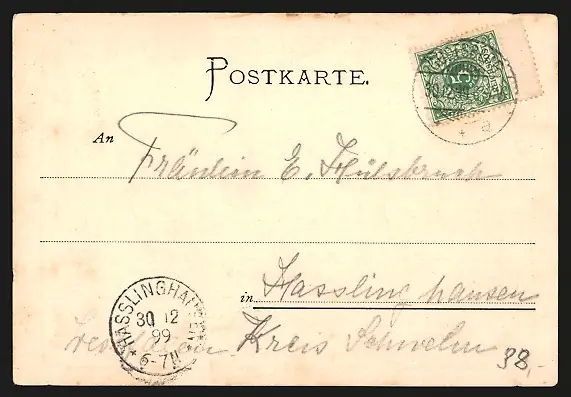 POSTKARTE.
5
An
Fräulein E. Hülsbruch
in Hasslinghausen
HASSLINGHAUSEN
30 12
99
* 6-7N
Kreis Schwelm
38,-